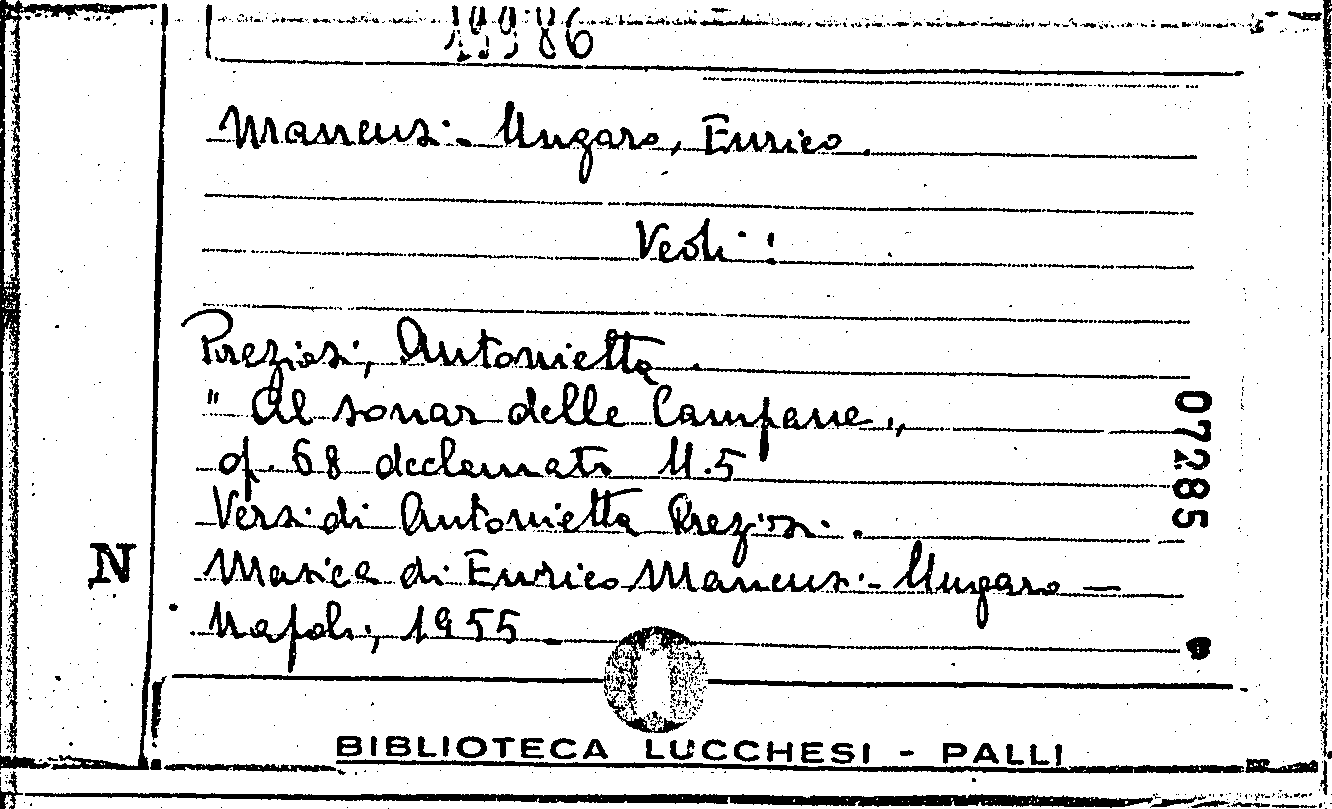 19986
Mancusi-Ungaro, Enrico.
Vedi:
Preziosi, Antonietta.
"Al sonar delle Campane„
op. 68 declamato N.5
Versi di Antonietta Preziosi.
Musica di Enrico Mancusi-Ungaro —
Napoli, 1955
07285
N
BIBLIOTECA LUCCHESI - PALLI